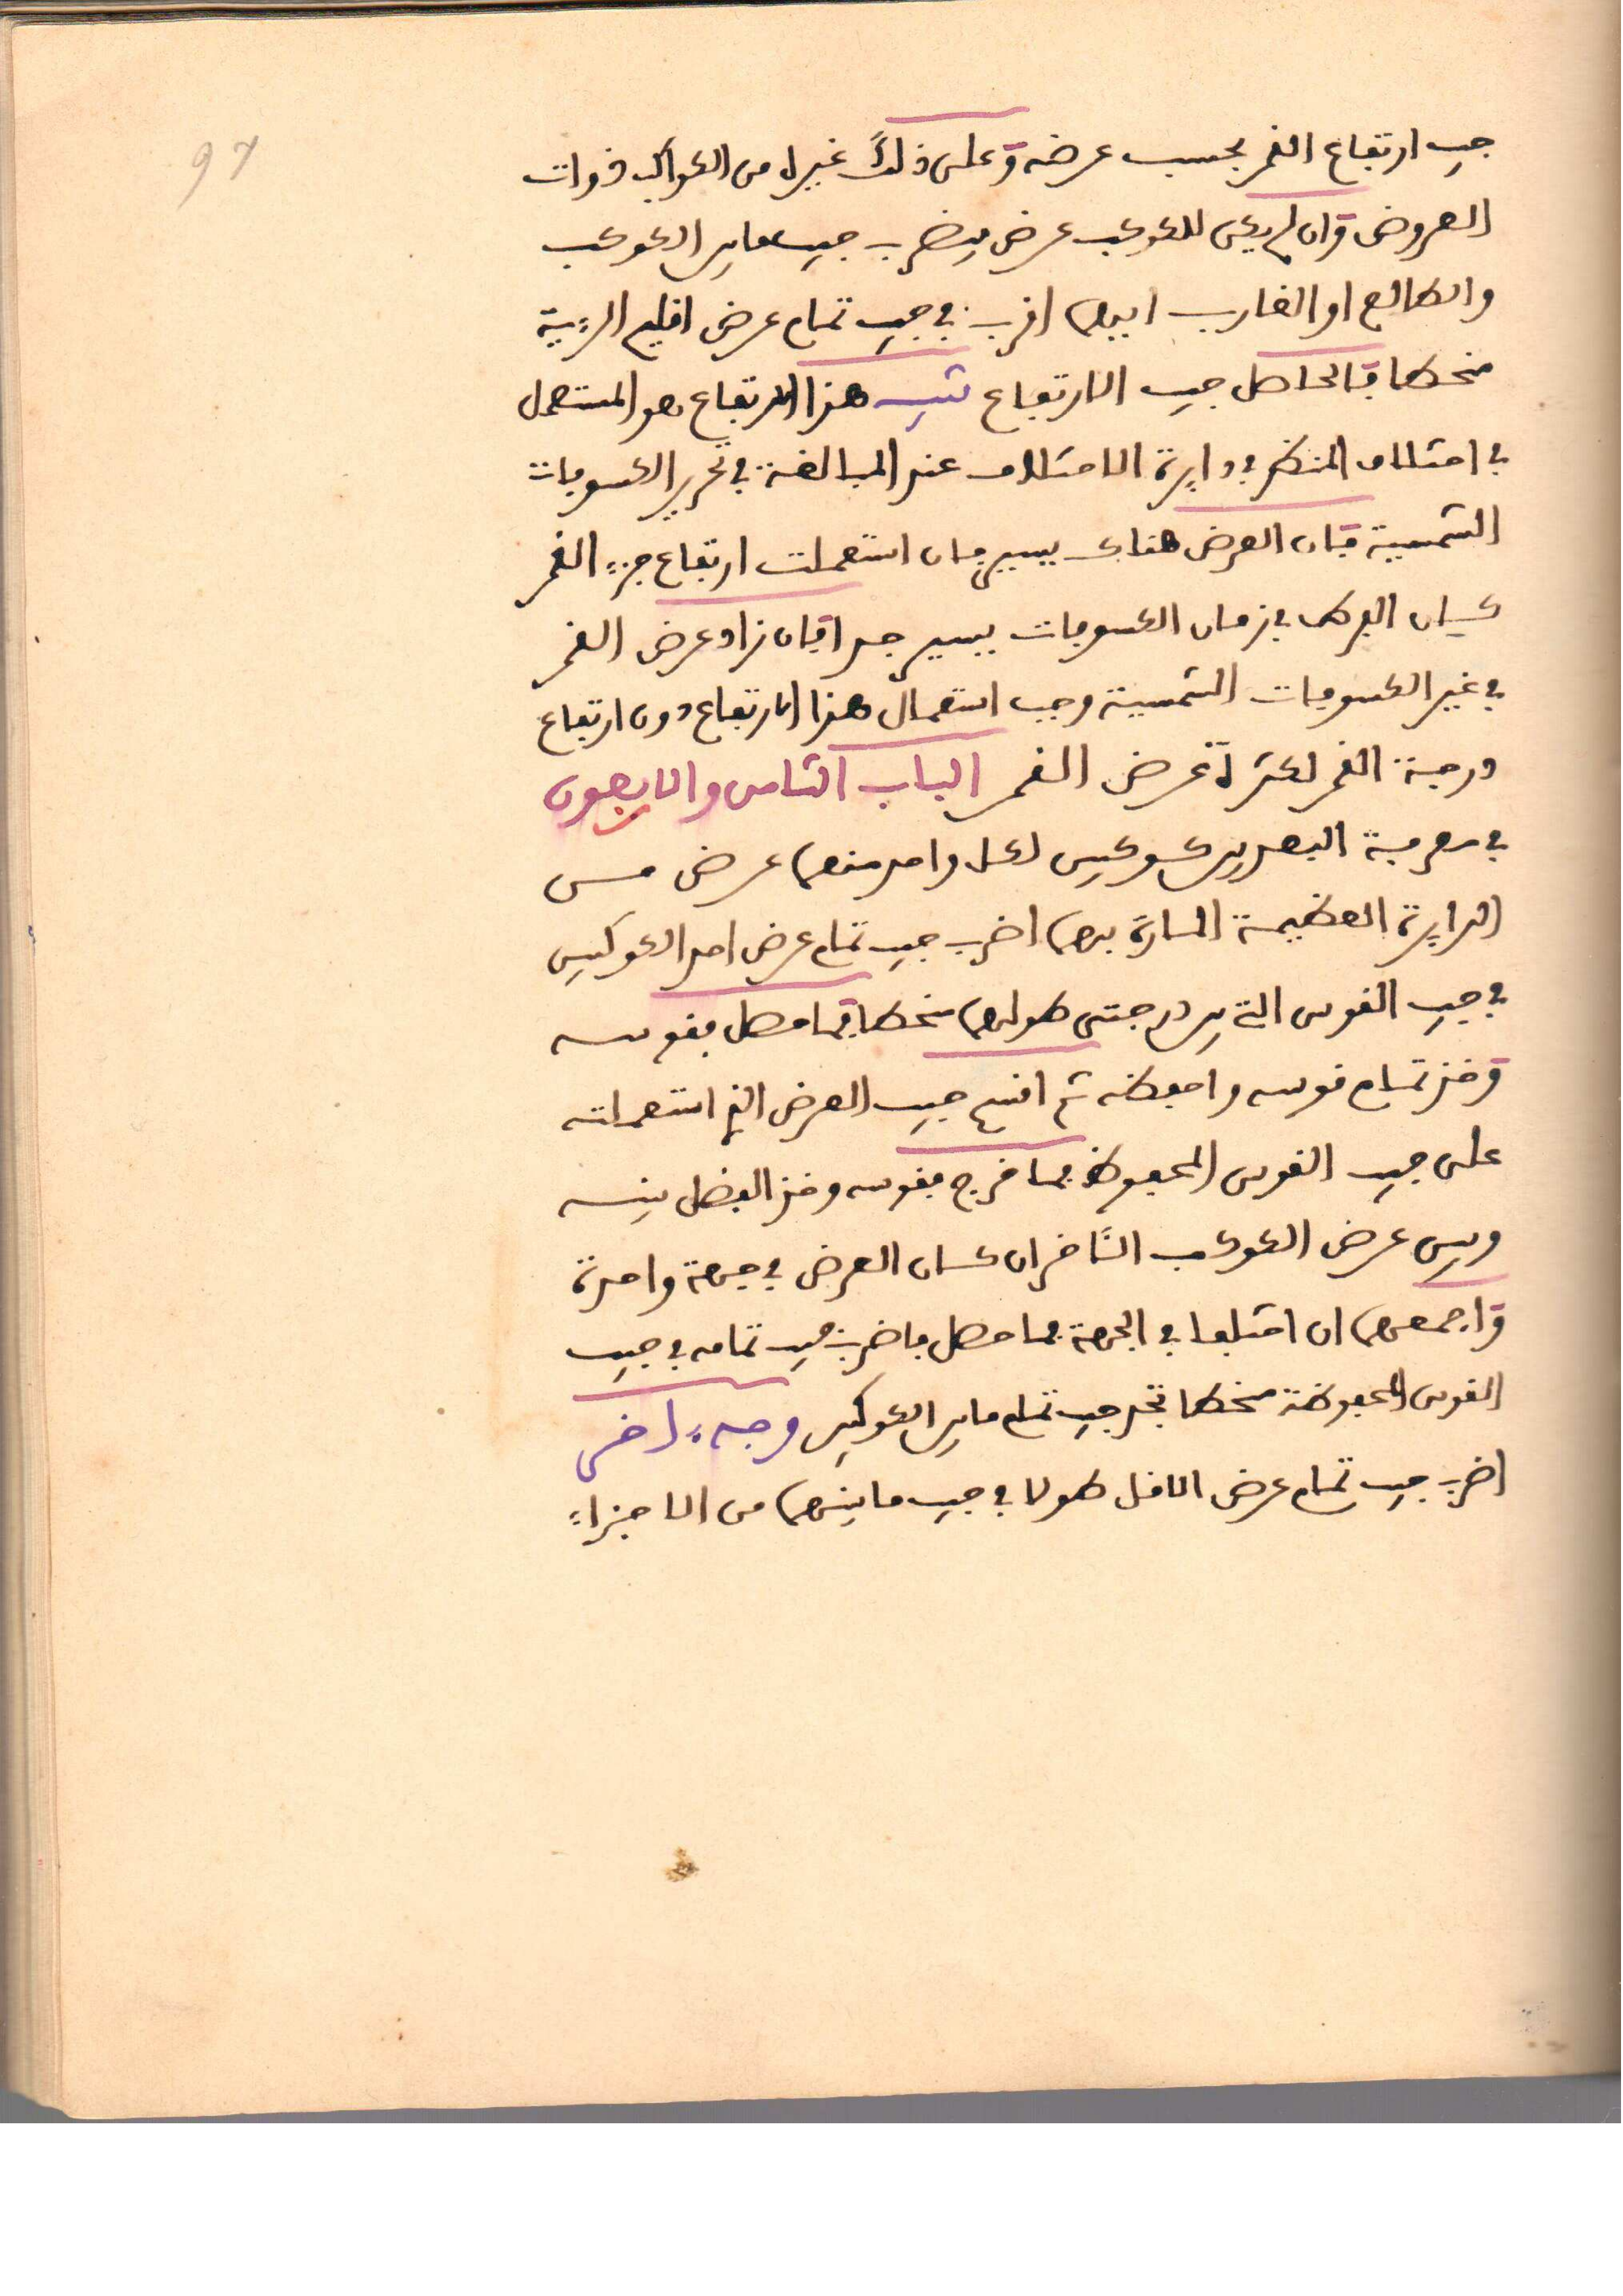 97
جيب ارتفاع القمر بحسب عرضه وعلى ذلك غيره من الكواكب ذوات
العروض وان لم يكن للكوكب عرض فيضرب جيب ما بين الكوكب
والطالع او الغارب ايهما اقرب في جيب تمام عرض اقليم الرءية
منحطا فالحاصل جيب الارتفاع تنبيه هذا الارتفاع هو المستعمل
في اختلاف المنظر في دايرة الاختلاف عند المبالغة في تحرير الكسوفات
الشمسية فان العرض هناك يسير فان استعملت ارتفاع جزء القمر
كان الفرق في زمان الكسوفات يسير جدا فان زاد عرض القمر
في غير الكسوفات الشمسية وجب استعمال هذا الارتفاع دون ارتفاع
درجة القمر لكثرة عرض القمر الباب الثامن والاربعون
في معرفة البعد بين كوكبين لكل واحد منهما عرض من
الدايرة العظيمة المارة بهما اضرب جيب تمام عرض احد الكوكبين
في جيب القوس التي بين درجتى طولهما منحطا فما حصل فقوسه
وخذ تمام قوسه واحفظه ثم اقسم جيب العرض الذي استعملته
على جيب القوس المحفوظ فما خرج فقوسه وخذ الفضل بينه
وبين عرض الكوكب الثاخر ان كان العرض في جهة واحدة
واجمعهما ان اختلفا في الجهة فما حصل فاضرب جيب تمامه في جيب
القوس المحفوظة منحطا تجد جيب تمام ما بين الكوكبين وجه ءاخر
اضرب جيب تمام عرض الاقل طولا في جيب ما بينهما من الاجزاء